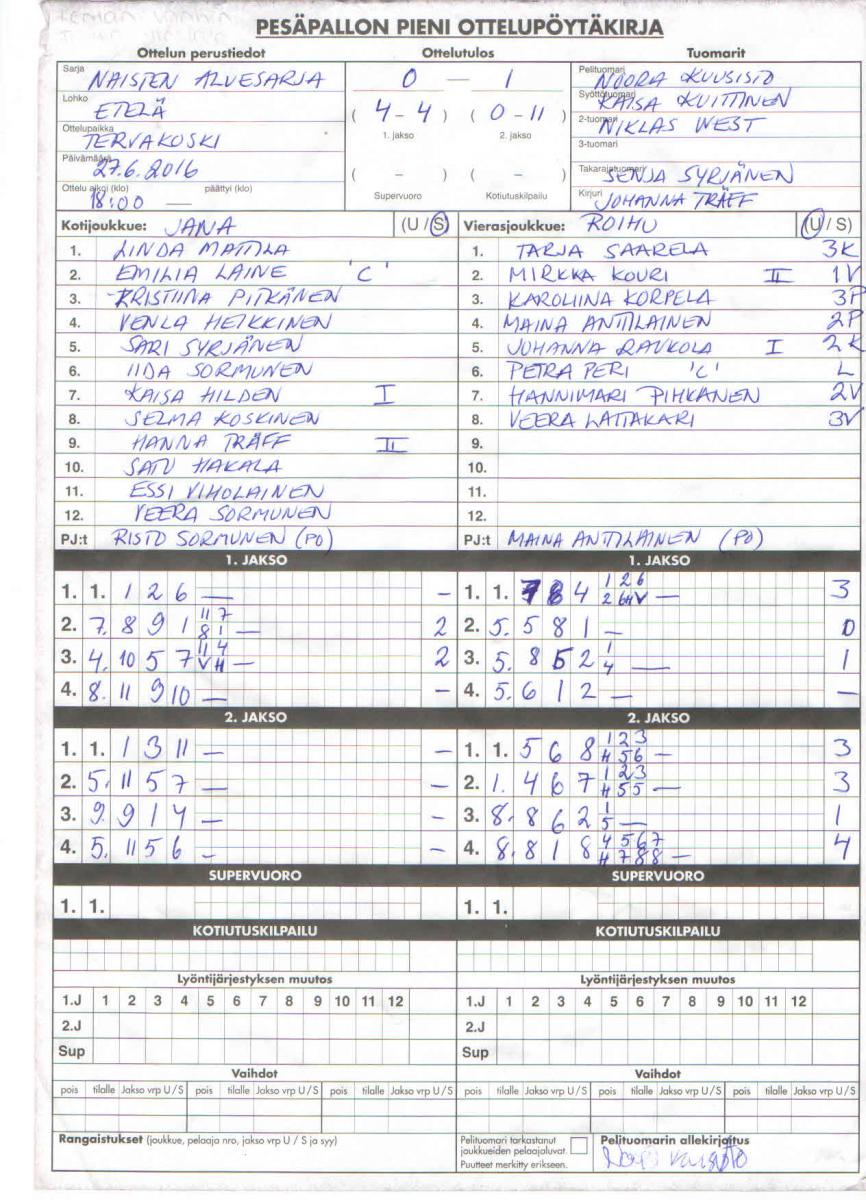 PESÄPALLON PIENI OTTELUPÖYTÄKIRJA
Ottelun perustiedot Ottelutulos Tuomarit
Sarja NAISTEN ALUESARJA
Lohko ETELÄ
Ottelupaikka TERVAKOSKI
Päivämäärä 27.6.2016
Ottelu alkoi (klo) päättyi (klo)
18:00 —
0 — 1
( 4 - 4 ) ( 0 - 11 )
1. jakso 2. jakso
( - ) ( - )
Supervuoro Kotiutuskilpailu
Pelituomari NOORA KUUSISTO
Syöttötuomari KAISA KUITTINEN
2-tuomari NIKLAS WEST
3-tuomari
Takarajatuomari SENJA SYRJÄNEN
Kirjuri JOHANNA TRÄFF
Kotijoukkue: JANA (U / S)
1. LINDA MATTILA
2. EMILIA LAINE 'C'
3. KRISTIINA PITKÄNEN
4. VENLA HEIKKINEN
5. SARI SYRJÄNEN
6. IIDA SORMUNEN
7. KAISA HILDEN I
8. SELMA KOSKINEN
9. HANNA TRÄFF II
10. SATU HAKALA
11. ESSI VIHOLAINEN
12. VEERA SORMUNEN
PJ:t RISTO SORMUNEN (PO)
Vierasjoukkue: ROIHU (U / S)
1. TARJA SAARELA 3K
2. MIRKKA KOURI II 1V
3. KAROLIINA KORPELA 3P
4. MAINA ANTTILAINEN 2P
5. JOHANNA RAUKOLA I 2K
6. PETRA PERI 'C' L
7. HANNIMARI PIHKANEN 2V
8. VEERA LATTAKARI 3V
9.
10.
11.
12.
PJ:t MAINA ANTTILAINEN (PO)
1. JAKSO
1. 1. 1 2 6 — -
2. 7. 8 9 1 11 7 8 1 — 2
3. 4. 10 5 7 11 4 V H — 2
4. 8. 11 9 10 — -
1. JAKSO
1. 1. 8 4 1 2 6 2 6 — 3
2. 5. 5 8 1 — 0
3. 5. 8 5 2 1 4 — 1
4. 5. 6 1 2 — -
2. JAKSO
1. 1. 1 3 11 — -
2. 5. 11 5 7 — -
3. 9. 9 1 4 — -
4. 5. 11 5 6 — -
2. JAKSO
1. 1. 5 6 8 1 2 3 H 5 6 — 3
2. 1. 4 6 7 1 2 3 H 5 5 — 3
3. 8. 8 6 2 1 5 — 1
4. 8. 8 1 8 4 5 6 7 H 7 8 8 — 4
SUPERVUORO SUPERVUORO
1. 1. 1. 1.
KOTIUTUSKILPAILU KOTIUTUSKILPAILU
Lyöntijärjestyksen muutos Lyöntijärjestyksen muutos
1.J 1 2 3 4 5 6 7 8 9 10 11 12 1.J 1 2 3 4 5 6 7 8 9 10 11 12
2.J 2.J
Sup Sup
Vaihdot Vaihdot
pois tilalle Jakso vrp U / S pois tilalle Jakso vrp U / S pois tilalle Jakso vrp U / S pois tilalle Jakso vrp U / S pois tilalle Jakso vrp U / S pois tilalle Jakso vrp U / S
Rangaistukset (joukkue, pelaaja nro, jakso vrp U / S ja syy)
Pelituomari tarkastanut
joukkueiden pelaajaluvat.
Puutteet merkitty erikseen.
Pelituomarin allekirjoitus